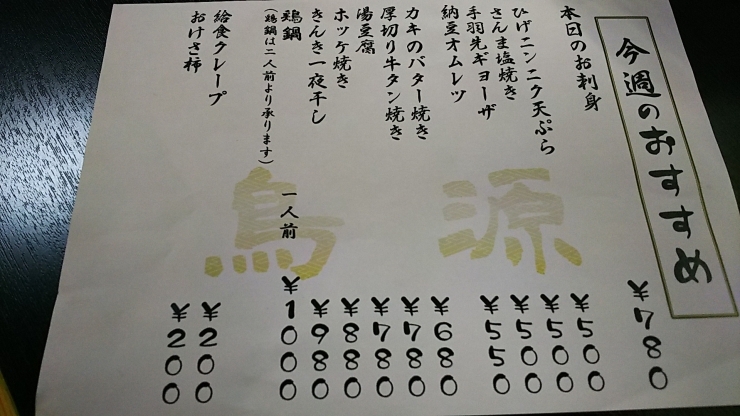 今週のおすすめ
本日のお刺身 ¥780
ひげニンニク天ぷら ¥500
さんま塩焼き ¥500
手羽先ギョーザ ¥500
納豆オムレツ ¥550
カキのバター焼き ¥680
厚切り牛タン焼き ¥780
湯豆腐 ¥780
ホッケ焼き ¥880
きんき一夜干し ¥980
鶏鍋 一人前 ¥1000
(鶏鍋は二人前より承ります)
給食クレープ ¥200
おけさ柿 ¥200
鳥源